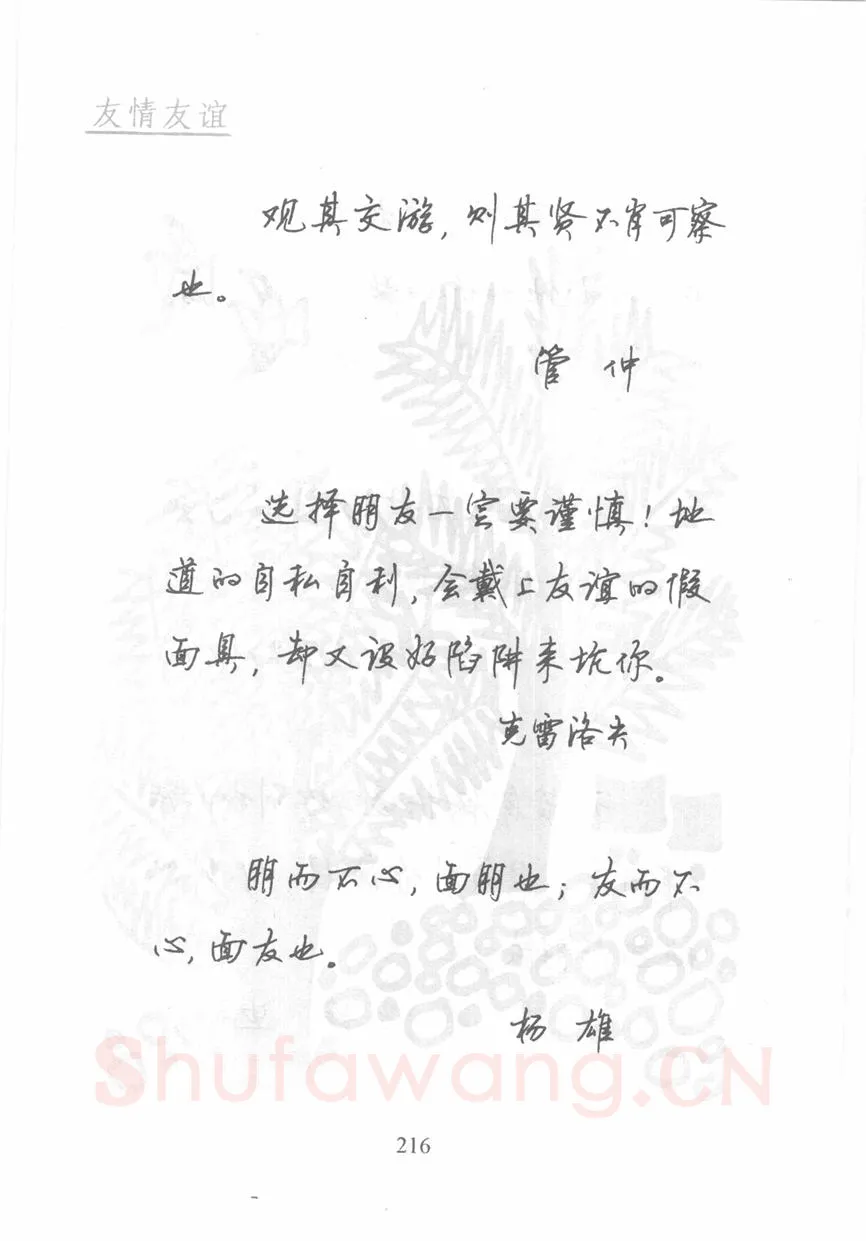 友情友谊
观其交游,则其贤不肖可察
也。
管 仲
选择朋友一定要谨慎!地
道的自私自利,会戴上友谊的假
面具,却又设好陷阱来坑你。
克雷洛夫
朋而不心,面朋也;友而不
心,面友也。
杨 雄
Shufawang.CN
216